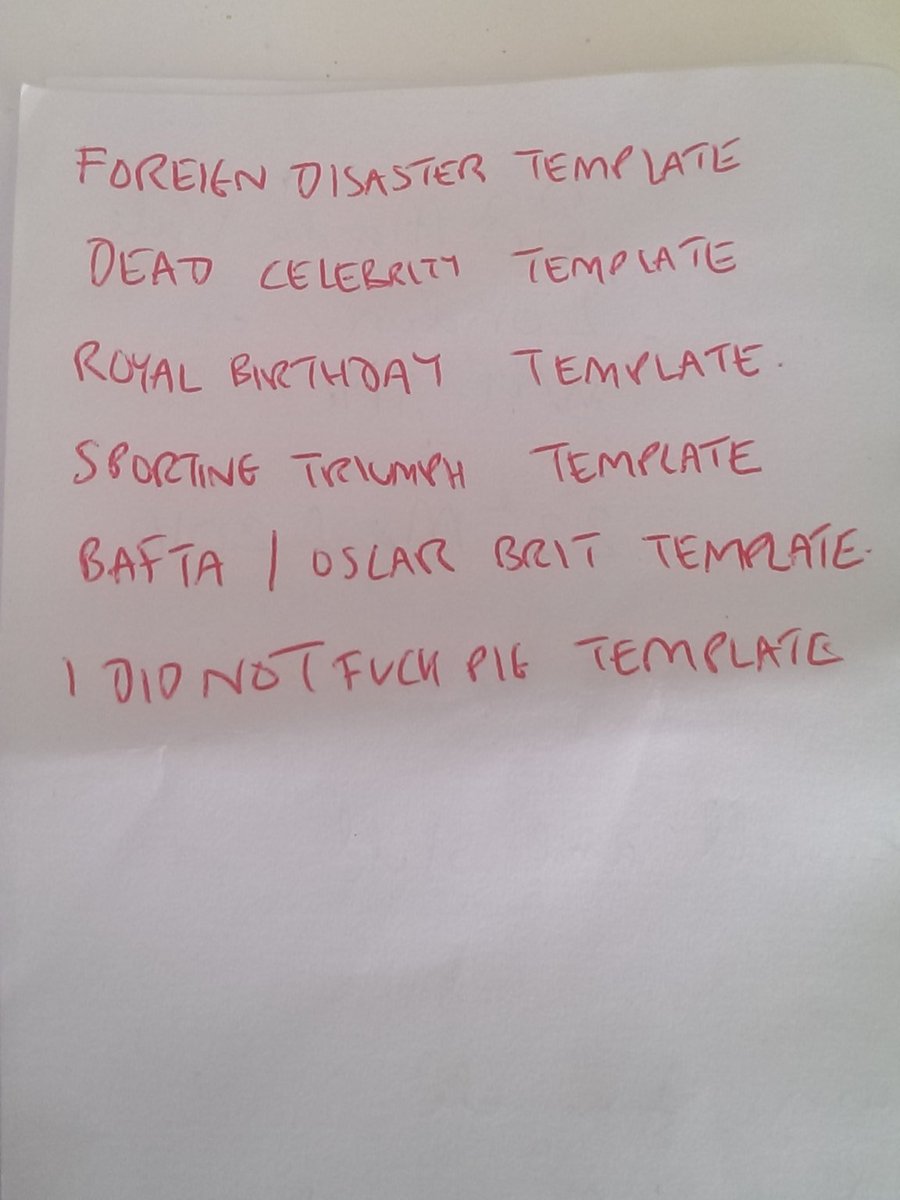 FOREIGN DISASTER TEMPLATE
DEAD CELEBRITY TEMPLATE
ROYAL BIRTHDAY TEMPLATE.
SPORTING TRIUMPH TEMPLATE
BAFTA / OSCAR BRIT TEMPLATE.
I DID NOT FUCK PIG TEMPLATE